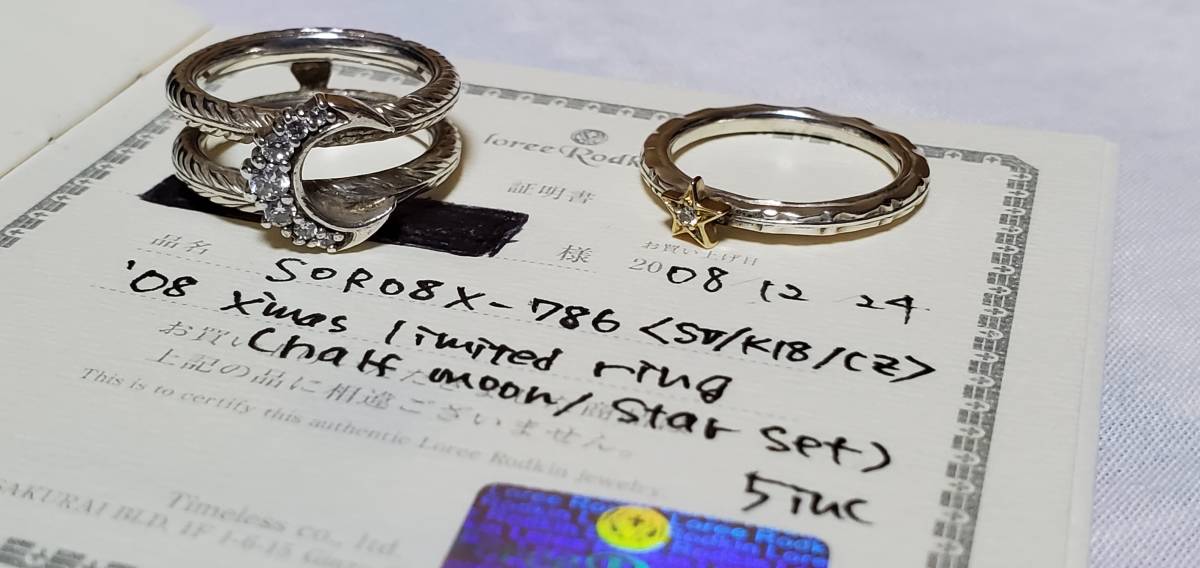 Loree Rodk
証明書
様
お買い上げ日
2008 12 24
品名 SOR08X-786 <SV/K18/CZ>
'08 Ximas limited ring
(half moon/Star set)
お買い
上記の品に相違ございません。
This is to certify this authentic Loree Rodkin jewelry.
5inc
Timeless co., ltd.
SAKURAI BLD. 1F 1-6-15
Loree Rodk